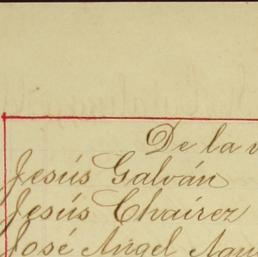 De la
Jesús Galván
Jesús Chairez
José Angel